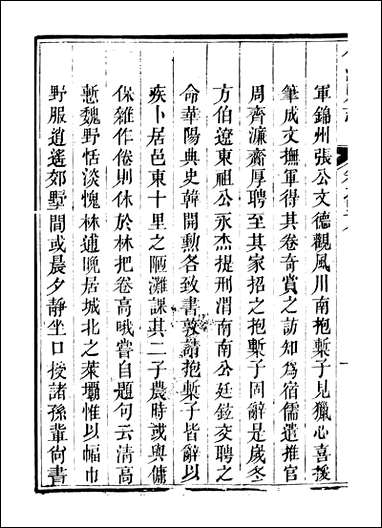 軍錦州張公文德觀風川南抱槧子見獵心喜援
筆成文撫軍得其卷奇賞之訪知爲宿儒遣推官
周齊濂齋厚聘至其家招之抱槧子固辭是歲冬
方伯遼東祖公永杰提刑渭南南公廷鉉交聘之
命華陽典史韓開勳各致書敦請抱槧子皆辭以
疾卜居邑東十里之陋灘課其二子農時或與傭
保雜作倦則休於林把卷高哦嘗自題句云清高
慙魏野恬淡愧林逋晚居城北之萊壩惟以幅巾
野服逍遙郊墅間或晨夕靜坐口授諸孫輩尙書